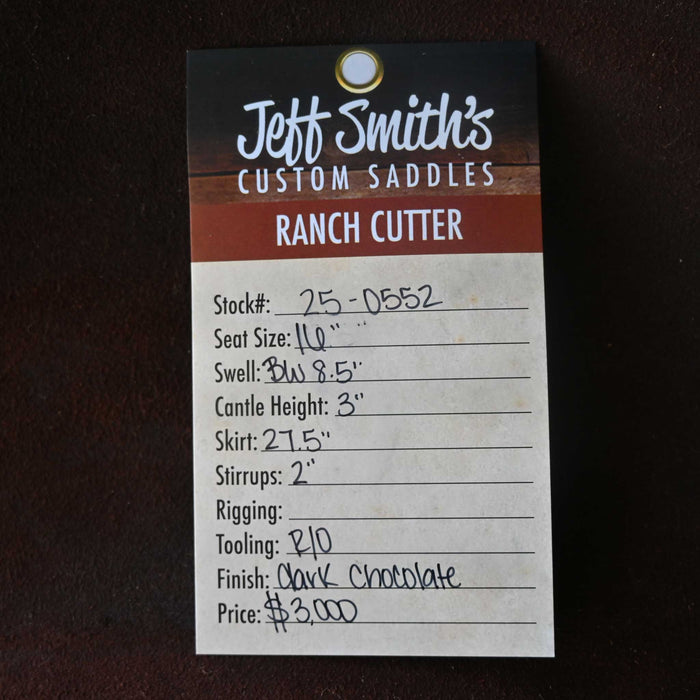 Jeff Smith's
CUSTOM SADDLES
RANCH CUTTER
Stock#: 25-0552
Seat Size: 16"
Swell: BW 8.5"
Cantle Height: 3"
Skirt: 27.5"
Stirrups: 2"
Rigging:
Tooling: R/O
Finish: Dark Chocolate
Price: $3,000